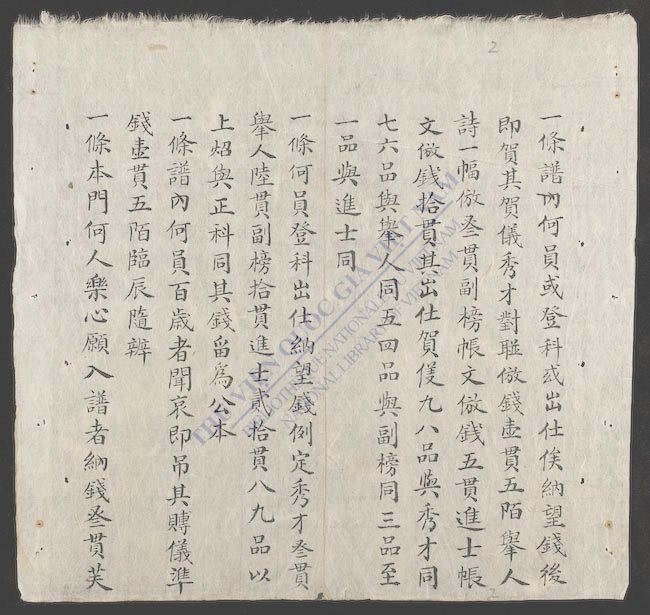 2
一條譜內何員或登科或出仕俟納望錢後
即賀其賀儀秀才對聯倣錢壹貫五陌舉人
詩一幅倣叄貫副榜帳文倣錢五貫進士帳
文倣錢拾貫其出仕賀儀九八品與秀才同
七六品與舉人同五四品與副榜同三品至
一品與進士同
一條何員登科出仕納望錢例定秀才叄貫
舉人陸貫副榜拾貫進士貳拾貫八九品以
上炤與正科同其錢留爲公本
一條譜內何員百歲者聞哀即吊其賻儀準
錢壹貫五陌臨辰隨辨
一條本門何人樂心願入譜者納錢叄貫芙
THƯ VIỆN QUỐC GIA VIỆT NAM
BIBLIOTHÈQUE NATIONALE DU VIETNAM
NATIONAL LIBRARY OF VIETNAM